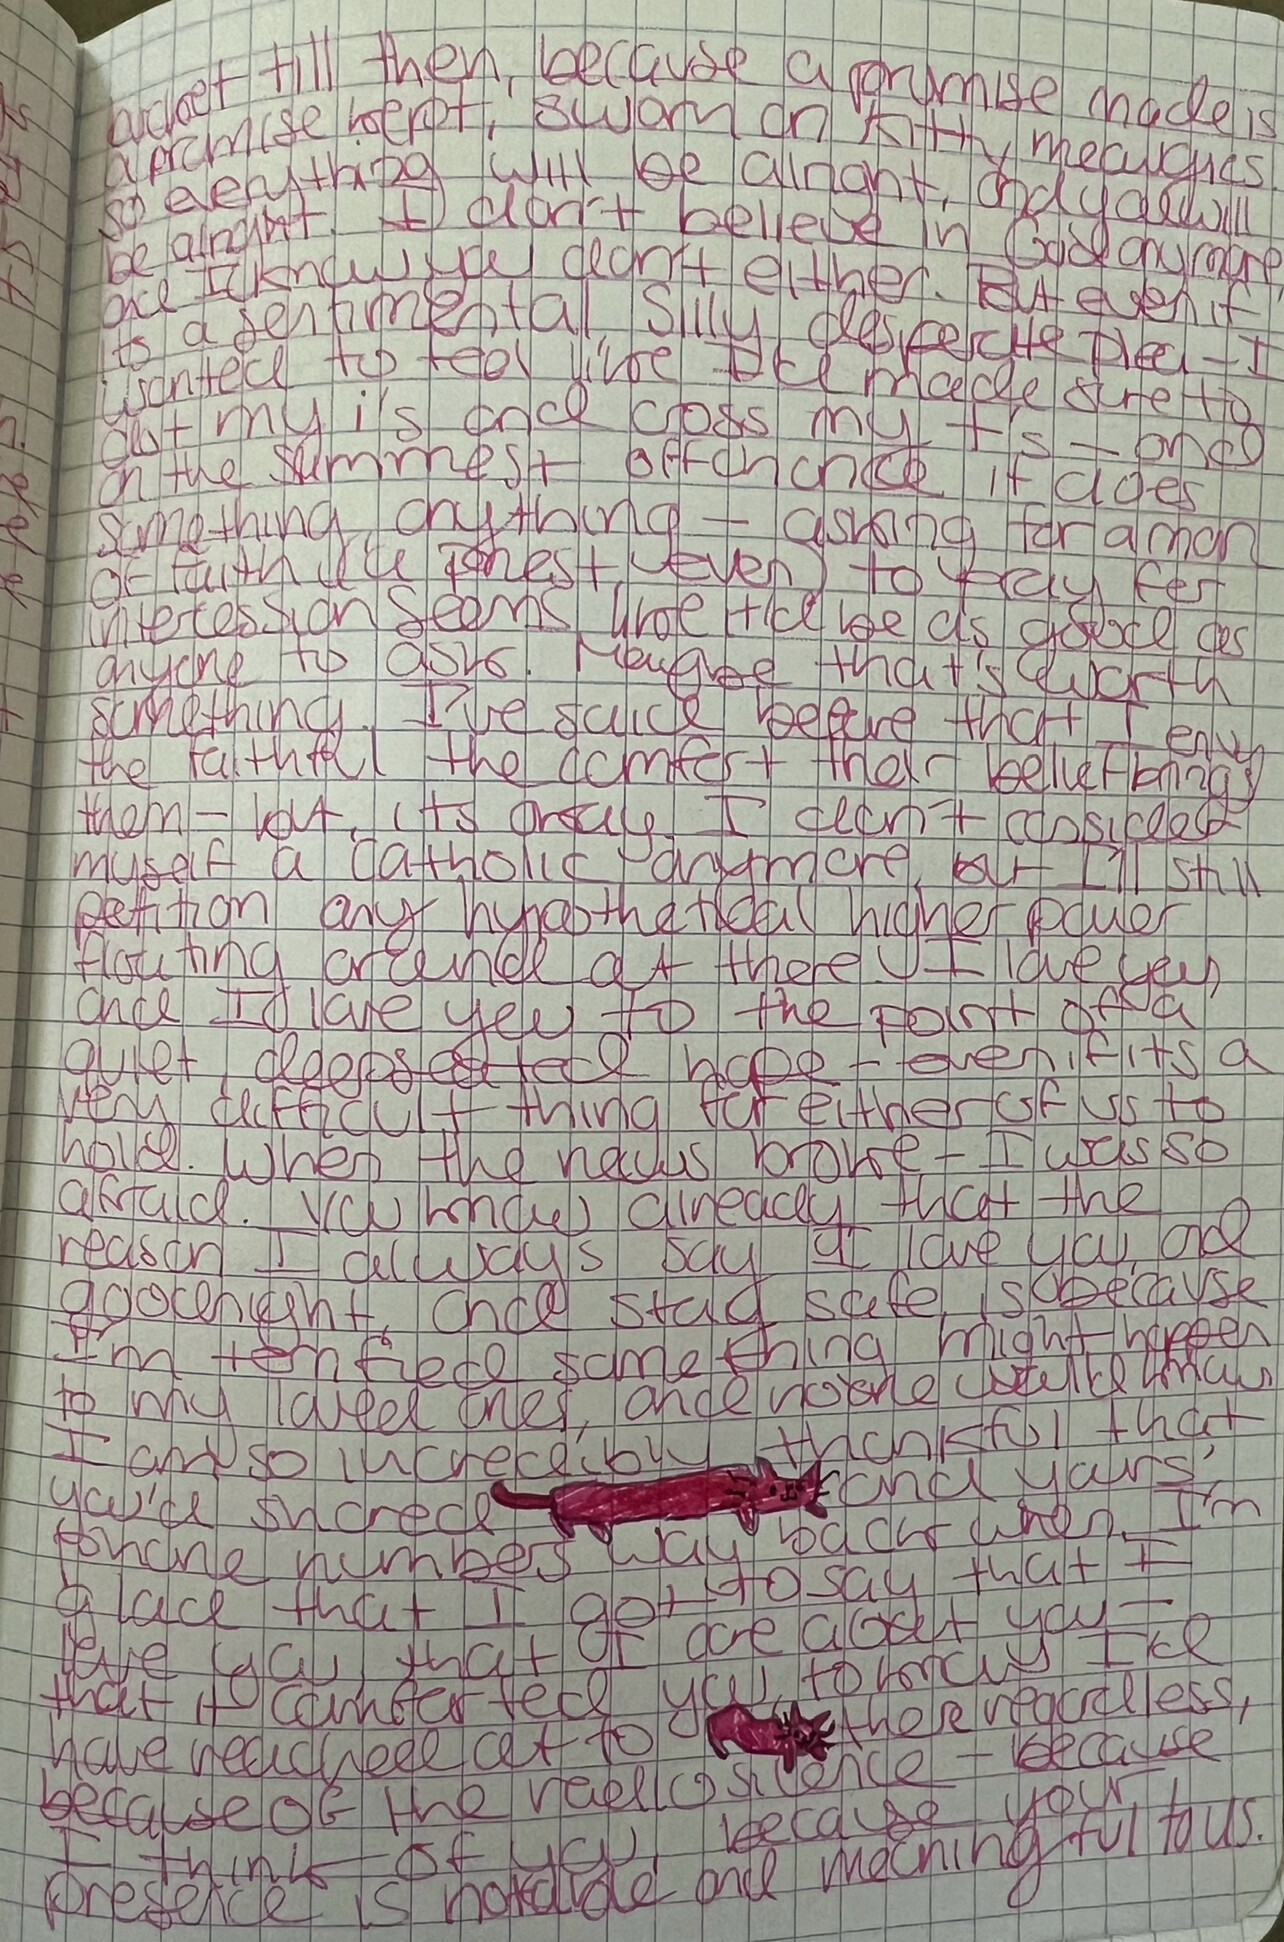 till then, because a promise made is
a promise kept, sworn on kitty meowmes
so everything will be alright, and you will
be alright. I don't believe in God anymore,
and I know you don't either. But even if
its a sentimental, silly desperate plea - I
wanted to feel like I'd made sure to
dot my i's and cross my t's - and
on the slimmest offchance it does
something, anything - asking for a man
of faith (a priest, even) to pray for
intercession seems like he'd be as good as
anyone to ask. Maybe that's worth
something. I've said before that I envy
the faithful the comfort their belief brings
them - but, its okay. I don't consider
myself a Catholic anymore, but I'll still
petition any hypothetical higher power
floating around out there. I love you,
and I'd love you to the point of a
quiet, deepseated hope - even if its a
very difficult thing for either of us to
hold. When the news broke - I was so
afraid. You know already that the
reason I always say I love you, and
goodnight, and stay safe, is because
I'm terrified something might happen
to my loved ones, and no one would know
I am so incredibly thankful that
you'd shared and yours'
phone numbers way back when. I'm
glad that I got to say that I
love you, that I care about you -
that it comforted you, to know I'd
have reached out to there regardless,
because of the radio silence - because
I think of you, because your
presence is notable and meaningful to us.